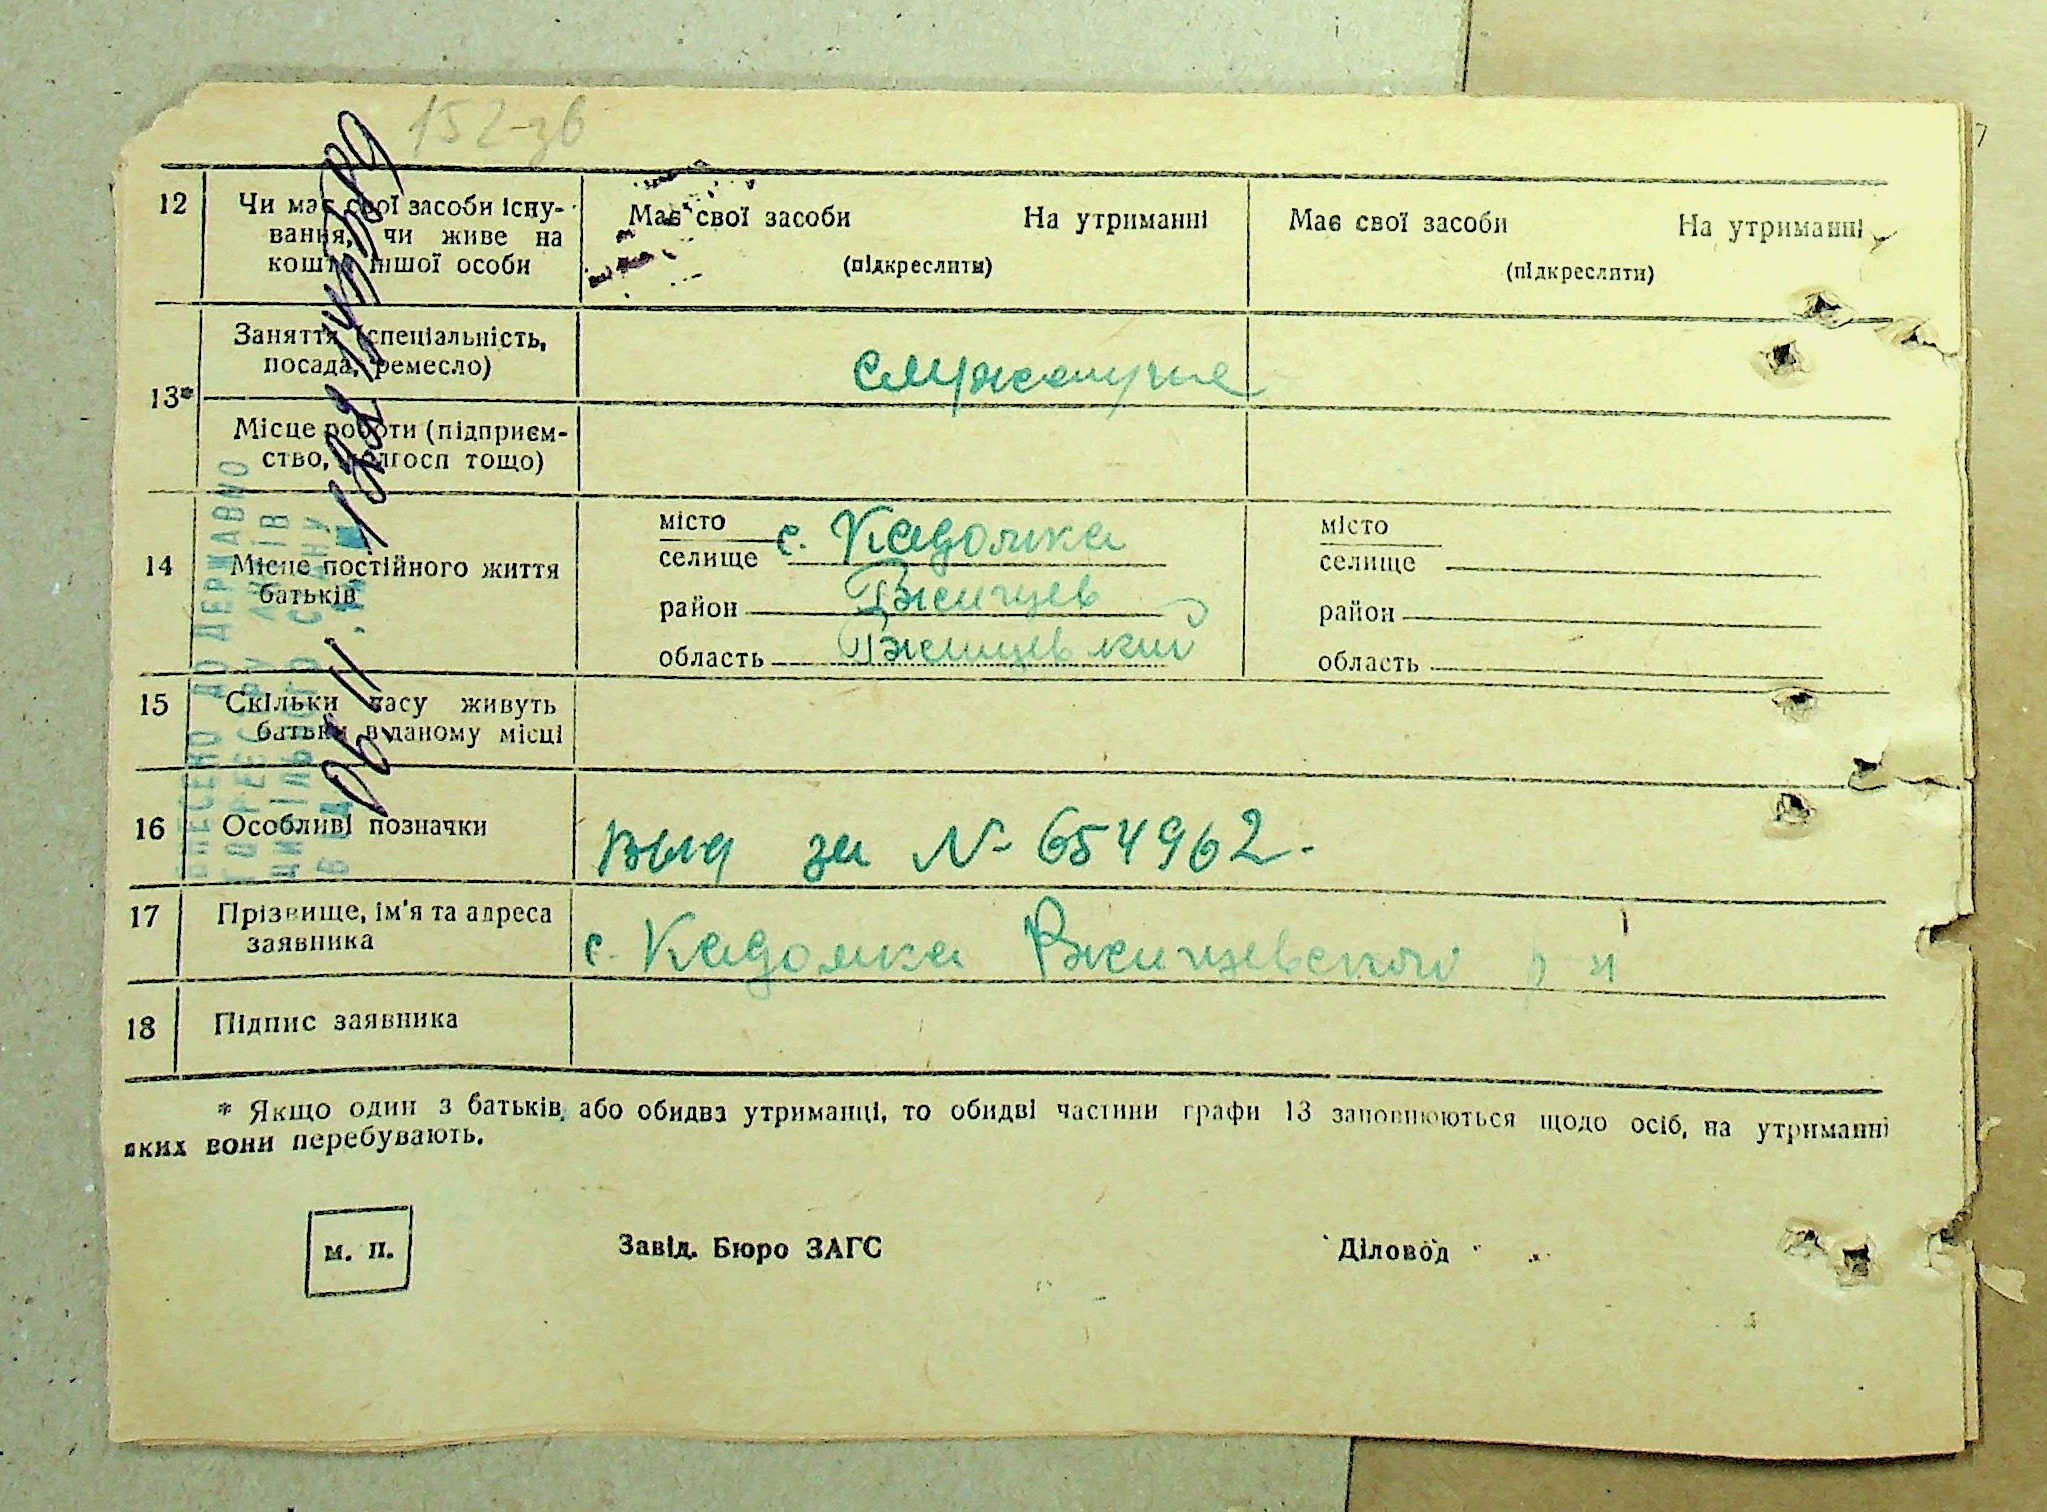 152-зв
12 Чи має свої засоби існу-
вання, чи живе на
кошти іншої особи
Має свої засоби На утриманні
(підкреслити)
Має свої засоби На утриманні
(підкреслити)
13* Заняття (спеціальність,
посада, ремесло)
служащие
Місце роботи (підприєм-
ство, колгосп тощо)
14 Місце постійного життя
батьків
місто
селище с. Кадомка
район
область
місто
селище
район
область
15 Скільки часу живуть
батьки в даному місці
16 Особливі позначки
выд за № 654962.
17 Прізвище, ім'я та адреса
заявника
с. Кадомка Ржищевский р н
18 Підпис заявника
* Якщо один з батьків, або обидва утриманці, то обидві частини графи 13 заповнюються щодо осіб, на утриманні
яких вони перебувають.
м. п.
Завід. Бюро ЗАГС
Діловод
ВНЕСЕНО ДО ДЕРЖАВНО
ГО РЕЄСТРУ АКТІВ
ЦИВІЛЬНОГО СТАНУ